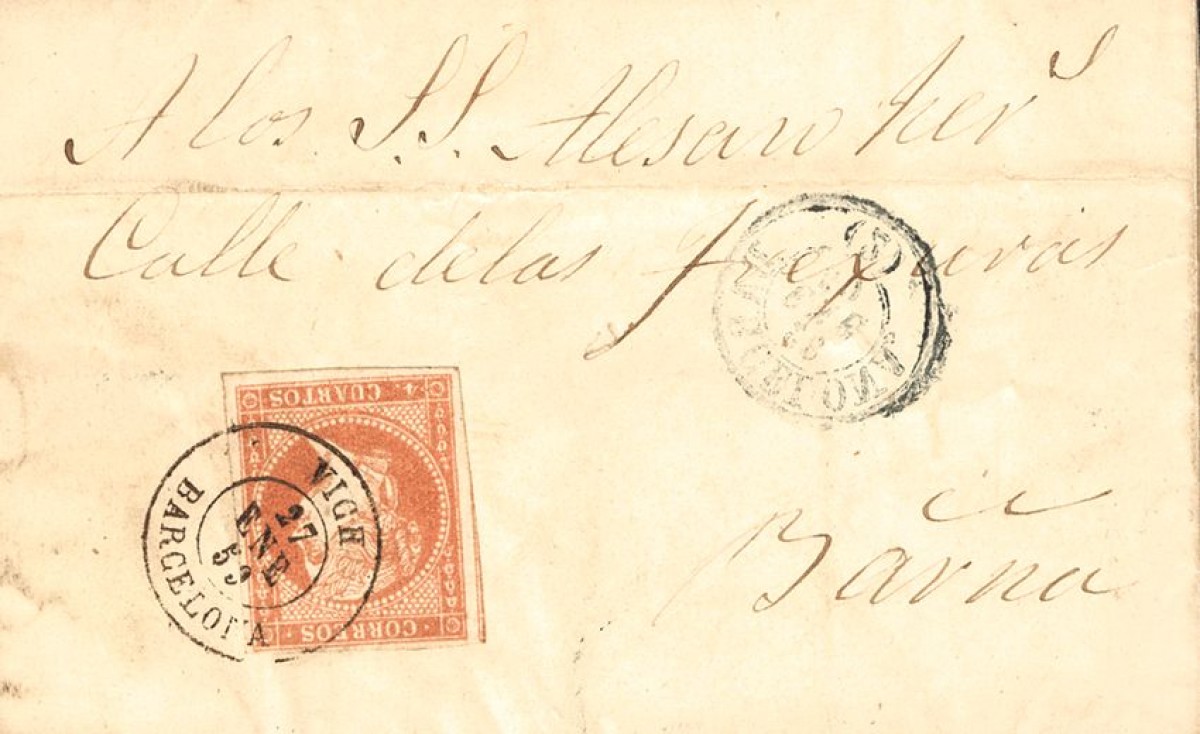 A los S.S. Alesan her^s
Calle delas
Barna
4 CUARTOS
CORREOS
VICH
27
ENE
59
BARCELONA